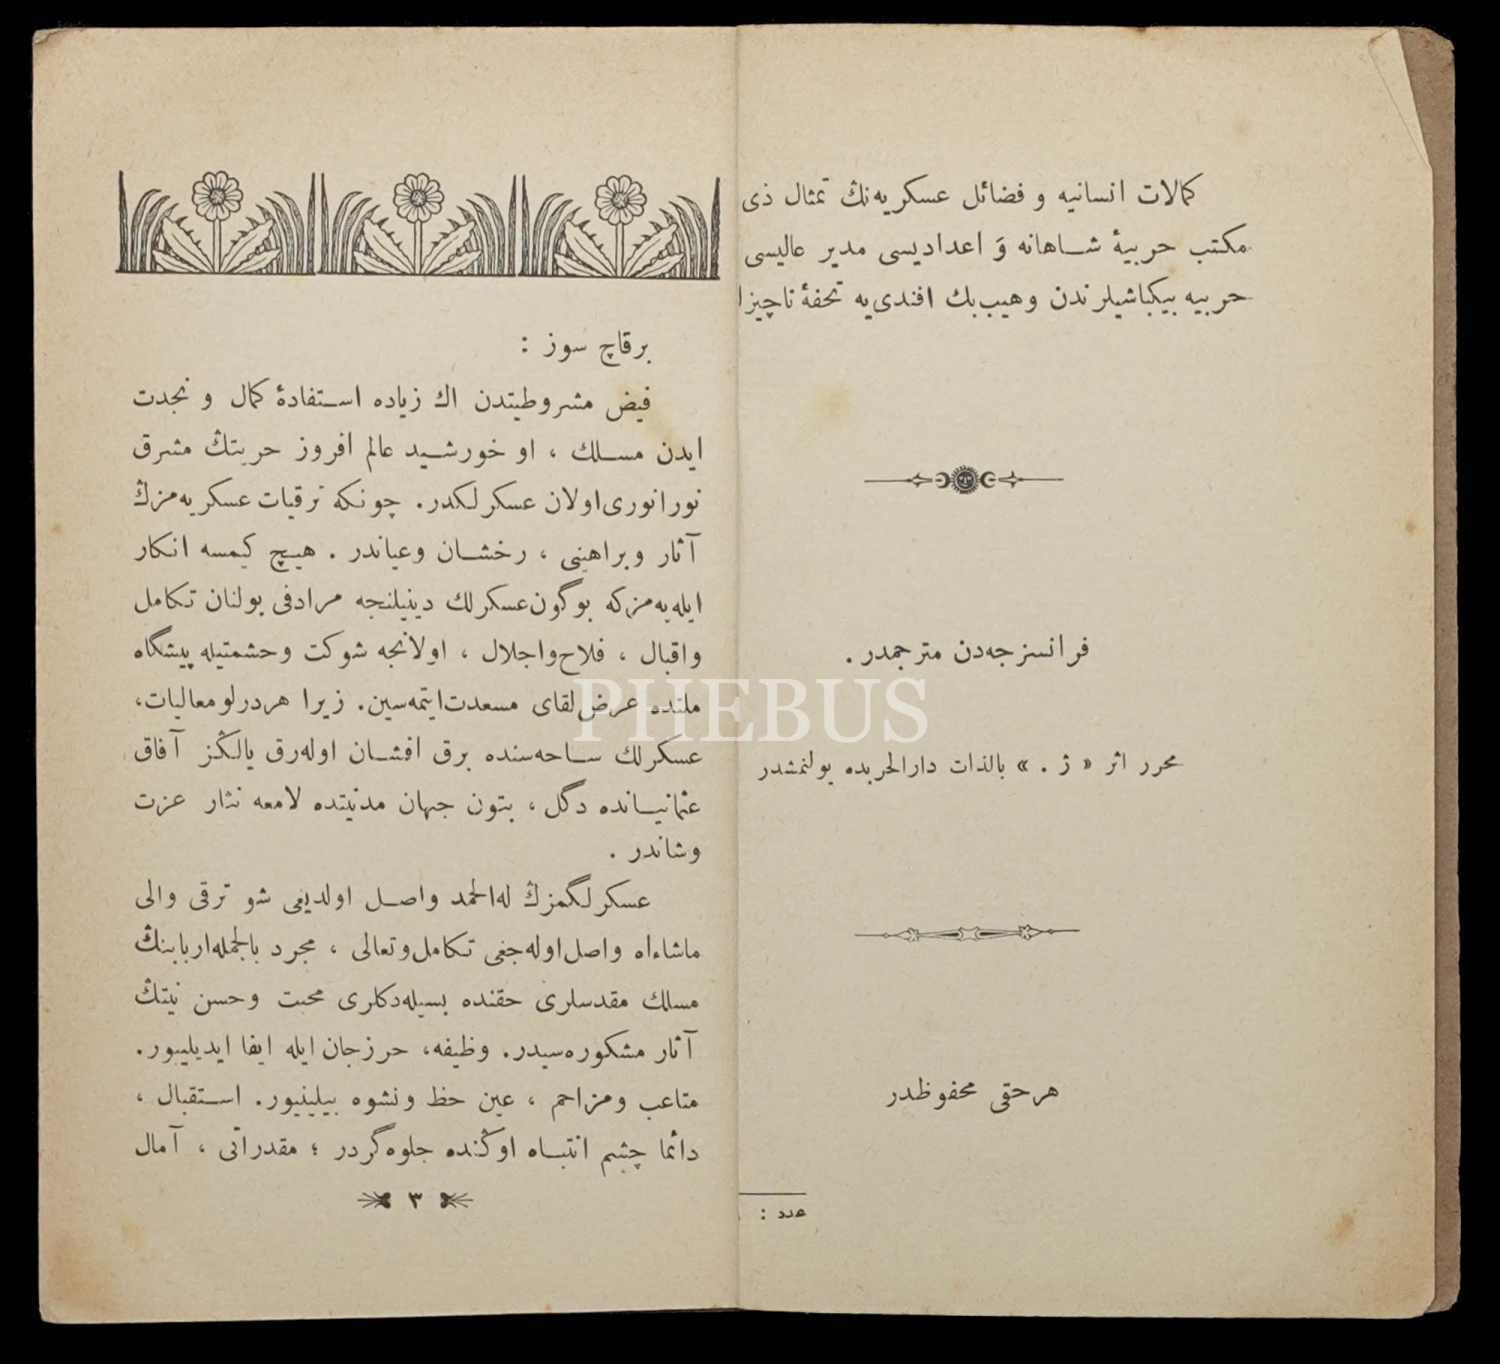 كمالات انسانيه و فضائل عسكريه‌نڭ تمثال ذی
مكتب حربيۀ شاهانه وَ اعداديسی مدير عاليسی
حربيه بيكباشيلرندن وهيب بك افندی‌يه تحفۀ ناچيزا
فرانسزجه‌دن مترجمدر .
محرر اثر « ژ . » بالذات دارالحربده بولنمشدر
هر حقی محفوظدر
عدد :
برقاچ سوز :
فيض مشروطيتدن اك زياده استفادۀ كمال و نجدت
ايدن مسلك ، او خورشيد عالم افروز حريتڭ مشرق
نورانوری اولان عسكرلكدر. چونكه ترقيات عسكريه‌مزڭ
آثار وبراهينی ، رخشان وعياندر . هيچ كيمسه انكار
ايله‌يه‌مزكه بوگون عسكرلك دينيلنجه مرادفی بولنان تكامل
واقبال ، فلاح واجلال ، اولانجه شوكت وحشمتيله پيشگاه
ملتده عرض لقای مسعدت ايتمه‌سين. زيرا هردرلو معاليات،
عسكرلك ساحه‌سنده برق افشان اوله‌رق يالڭز آفاق
عثمانيانده دگل ، بتون جهان مدنيتده لامعه نثار عزت
وشاندر .
عسكرلگمزڭ له‌الحمد واصل اولديغی شو ترقی والی
ماشاءاه واصل اوله‌جغی تكامل وتعالی ، مجرد بالجمله اربابنڭ
مسلك مقدسلری حقنده بسيله‌دكلری محبت وحسن نيتڭ
آثار مشكوره‌سيدر. وظيفه، حرزجان ايله ايفا ايديلييور.
متاعب ومزاحم ، عين حظ ونشوه بيلينيور. استقبال ،
دائما چشم انتباه اوڭنده جلوه‌گردر ؛ مقدراتی ، آمال
٣
PHEBUS